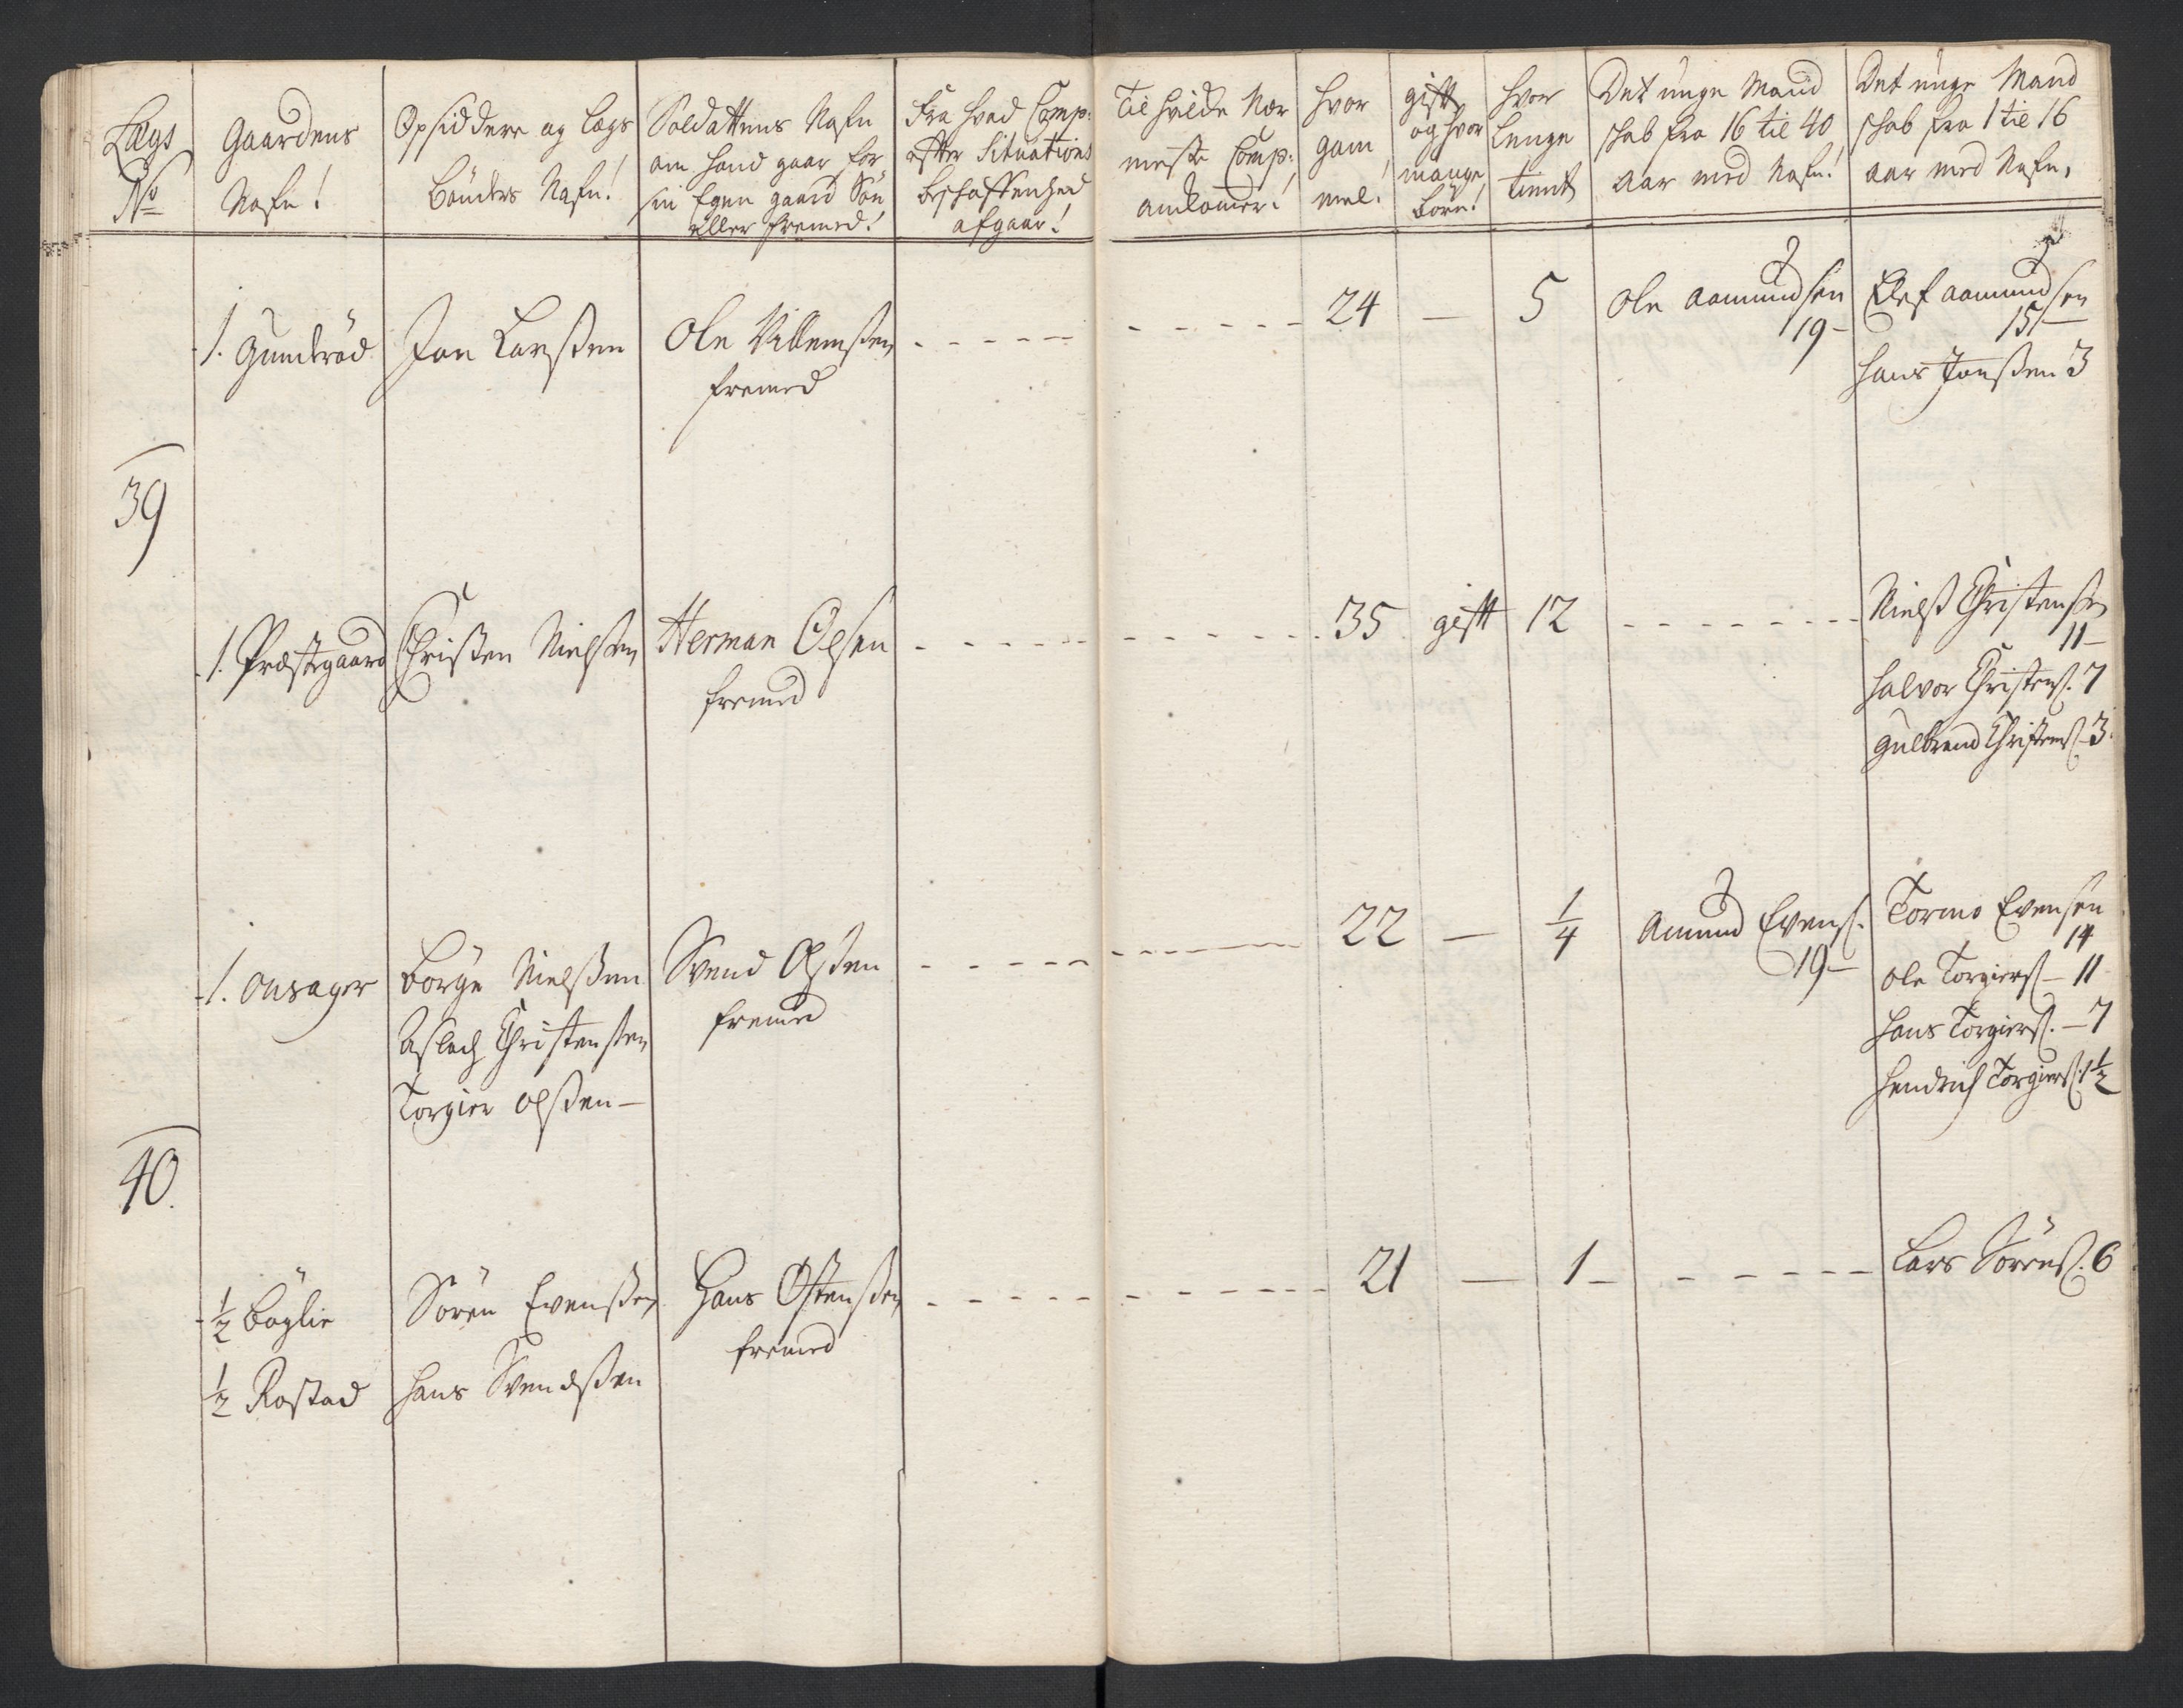 Lægs
No
Gaardens
Nafn!
Opsiddere og Lægs
Bönders Nafn!
Soldattens Nafn
om hand gaar for
sin Egen gaard Sön
eller fremed!
Fra hvad Comp:
efter Situations
beskaffenhed
afgaar!
Til hvilde Nær
meste Comp:
ankomer!
hvor
gam
mel!
gift
og hvor
mange
børn!
hvor
lenge
tient
Det unge Mand
skab fra 16 til 40
aar med Nafn!
Det unge Mand
skab fra 1 til 16
aar med Nafn,
1. Gunderöd
Jon Larssen
Ole Villemssen
fremed
24 — 5
Ole Aamundsen
19-
Elef Aamundsen
15-
Hans Jonssen 3
39
1. Præstegaard
Christen Nielssen
Herman Olsen
fremed
35 gift 12
Nielss Christenssen
11-
Halvor Christens. 7
Gulbrand Christens. 3.
1. Onsager
Börge Nielssen
Aslach Christenssen
Torgier Olssen—
Svend Olssen
fremed
22 — 1/4
Amund Evens.
19-
Tormo Evensen
14
Ole Torgiers. 11
Hans Torgiers. — 7
Hendrich Torgiers. 1 1/2
40.
1/2 Böglie
1/2 Rostad
Sören Evenssen
Hans Svendssen
Hans Ostenssen
fremed
21 — 1 —
Lars Sörens. 6